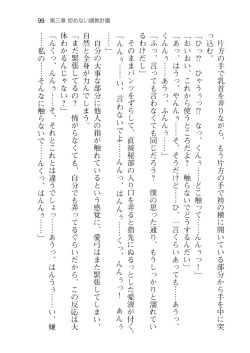 99 第三章
片方の手で乳首を弄りながら、もう片方の手で袴の横に開いている部分から手を中に突
っ込む。
「ひっ？ ひゃうっっ!? なっ、くんっ……どこ触って……んんぅっっ！」
「おいおい、これから使うところだよ？ 触らないでどうするんだい」
「くんっっっ……ふゃうっ……そ、そうだけど……ひ、一言くらいあっても……あうっ、
んんぅっっっ……！」
「んんぅ……い、言わないでよ……んくっ、はんんっ……」
「言っても言わなくても同じだろう？ 僕の思った通り、もうしっかりと濡れてい
るわけだし」
そのままパンツをずらして、直接秘部の入り口を弄ると指先にぬるっとした愛液が付く。
「くんんっっ……い、言わないでよ……あっ、んくぅっっっ……！ はんんっ、んんぅっ
……」
自分の大事な部分に他人の指が触れているという感覚に、愛弓はまた緊張してしまい、
自然と全身が力んでしまう。
「まだ緊張してるの？ 悄がらなくても、自分でも弄ってるぐらいだから、この反応は大
体わかるんじゃない？」
「……んくっ、んんっ、違うでしょっ、それとこれとは違う……あっ、はんぅぅ……い、嫌
……私の……そんなに触らないで……んくっっ、はんんっ……！」